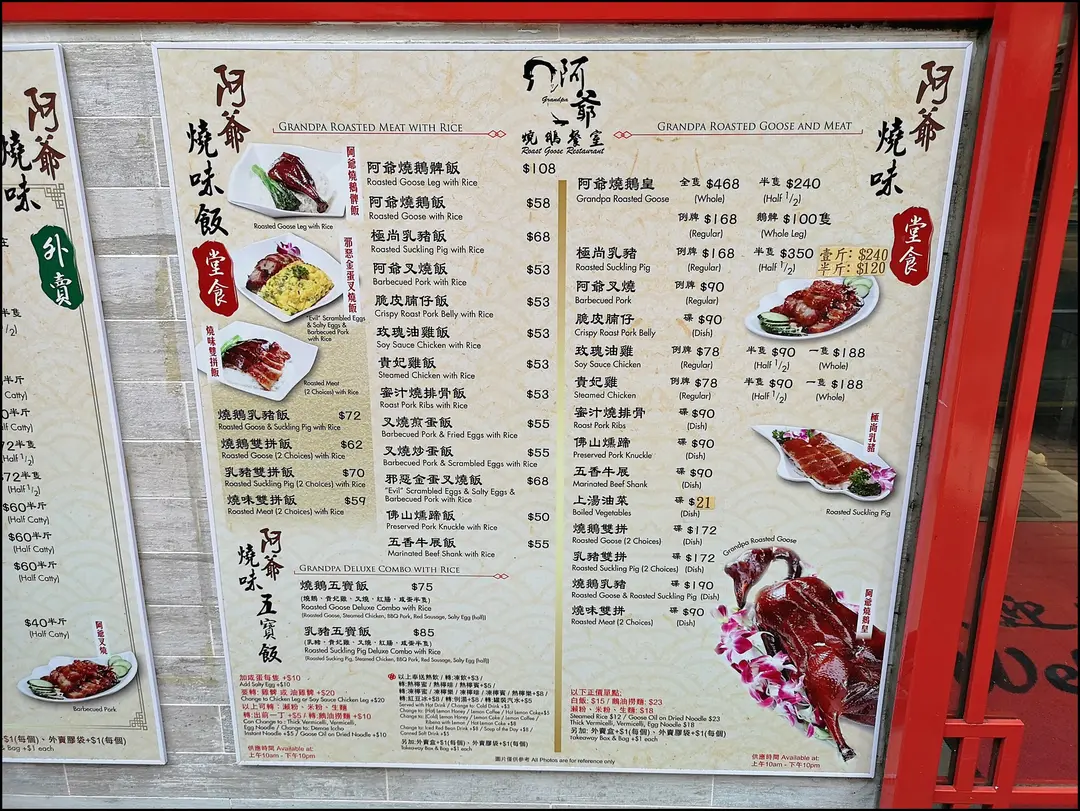 阿爺
燒味
外賣
在
(Half Catty)
(Half Catty)
(Half Catty)
$60半斤
(Half Catty)
$60半斤
(Half Catty)
$60半斤
(Half Catty)
$40半斤
(Half Catty)
阿爺叉燒
Barbecued Pork
外賣膠袋+$1(每個)
& Bag +$1 each
阿爺
燒味飯
堂食
GRANDPA ROASTED MEAT WITH RICE
阿爺燒鵝髀飯
Roasted Goose Leg with Rice
邪惡金蛋叉燒飯
"Evil" Scrambled Eggs
& Salty Eggs &
Barbecued Pork
with Rice
燒味雙拼飯
Roasted Meat
(2 Choices) with Rice
燒鵝乳豬飯 $72
Roasted Goose & Suckling Pig with Rice
燒鵝雙拼飯 $62
Roasted Goose (2 Choices) with Rice
乳豬雙拼飯 $70
Roasted Suckling Pig (2 Choices) with Rice
燒味雙拼飯 $59
Roasted Meat (2 Choices) with Rice
阿爺燒鵝髀飯 $108
Roasted Goose Leg with Rice
阿爺燒鵝飯 $58
Roasted Goose with Rice
極尚乳豬飯 $68
Roasted Suckling Pig with Rice
阿爺叉燒飯 $53
Barbecued Pork with Rice
脆皮腩仔飯 $53
Crispy Roast Pork Belly with Rice
玫瑰油雞飯 $53
Soy Sauce Chicken with Rice
貴妃雞飯 $53
Steamed Chicken with Rice
蜜汁燒排骨飯 $53
Roast Pork Ribs with Rice
叉燒煎蛋飯 $55
Barbecued Pork & Fried Eggs with Rice
叉燒炒蛋飯 $55
Barbecued Pork & Scrambled Eggs with Rice
邪惡金蛋叉燒飯 $68
"Evil" Scrambled Eggs & Salty Eggs &
Barbecued Pork with Rice
佛山燻蹄飯 $50
Preserved Pork Knuckle with Rice
五香牛展飯 $55
Marinated Beef Shank with Rice
阿爺
燒味五寶飯
GRANDPA DELUXE COMBO WITH RICE
燒鵝五寶飯 $75
(燒鵝、貴妃雞、叉燒、紅腸、咸蛋半隻)
Roasted Goose Deluxe Combo with Rice
(Roasted Goose, Steamed Chicken, BBQ Pork, Red Sausage, Salty Egg (half))
乳豬五寶飯 $85
(乳豬、貴妃雞、叉燒、紅腸、咸蛋半隻)
Roasted Suckling Pig Deluxe Combo with Rice
(Roasted Sucking Pig, Steamed Chicken, BBQ Pork, Red Sausage, Salty Egg (half))
加咸蛋每隻 +$10
Add Salty Egg +$10
要轉: 雞髀 或 油雞髀 +$20
Change to Chicken Leg or Soy Sauce Chicken Leg +$20
以上可轉：瀨粉、米粉、生麵
轉:出前一丁 +$5 / 轉:鵝油撈麵 +$10
Can Change to : Thick Vermicelli, Vermicelli,
Instant Noodle +$5 / Goose Oil on Dried Noodle +$10
供應時間 Available at:
上午10am - 下午10pm
以上奉送熱飲 / 轉:凍飲+$3/
轉:紅豆冰+$8 / 轉:例湯+$8 / 轉:罐裝汽水+$5
Served with Hot Drink / Change to: Cold Drink +$3
Change to: (Hot) Lemon Honey / Lemon Coffee / Hot Lemon Coke+$5
Change to: (Cold) Lemon Honey / Lemon Coke / Lemon Coffee /
Ribena with Lemon / Hot Lemon Coke +$8
Change to: Iced Red Bean Drink +$8 / Soup of the Day +$8 /
Canned Soft Drink +$5
另加:外賣盒+$1(每個)、外賣膠袋+$1(每個)
Takeaway Box & Bag +$1 each
阿爺
Grandpa
燒鵝餐室
Roast Goose Restaurant
GRANDPA ROASTED GOOSE AND MEAT
阿爺
燒味
堂食
阿爺燒鵝皇 全隻 $468 半隻 $240
Grandpa Roasted Goose (Whole) (Half 1/2)
例牌 $168 鵝髀 $100隻
(Regular) (Whole Leg)
極尚乳豬 例牌 $168 半隻 $350 壹斤: $240
Roasted Suckling Pig (Regular) (Half 1/2) 半斤: $120
阿爺叉燒 例牌 $90
Barbecued Pork (Regular)
脆皮腩仔 碟 $90
Crispy Roast Pork Belly (Dish)
玫瑰油雞 例牌 $78 半隻 $90 一隻 $188
Soy Sauce Chicken (Regular) (Half 1/2) (Whole)
貴妃雞 例牌 $78 半隻 $90 一隻 $188
Steamed Chicken (Regular) (Half 1/2) (Whole)
蜜汁燒排骨 碟 $90
Roast Pork Ribs (Dish)
佛山燻蹄 碟 $90
Preserved Pork Knuckle (Dish)
五香牛展 碟 $90
Marinated Beef Shank (Dish)
上湯油菜 碟 $21
Boiled Vegetables (Dish)
燒鵝雙拼 碟 $172
Roasted Goose (2 Choices) (Dish)
乳豬雙拼 碟 $172
Roasted Suckling Pig (2 Choices) (Dish)
燒鵝乳豬 碟 $190
Roasted Goose & Roasted Suckling Pig (Dish)
燒味雙拼 碟 $90
Roasted Meat (2 Choices) (Dish)
極尚乳豬
Roasted Suckling Pig
Grandpa Roasted Goose
阿爺燒鵝皇
以下正價單點:
白飯: $15 / 鵝油撈麵: $23
瀨粉、米粉、生麵: $18
Steamed Rice $12 / Goose Oil on Dried Noodle $23
Thick Vermicelli, Vermicelli, Egg Noodle $18
另加: 外賣盒+$1(每個)、外賣膠袋+$1(每個)
Takeaway Box & Bag +$1 each
供應時間 Available at:
上午10am - 下午10pm
圖片僅供參考 All Photos are for reference only